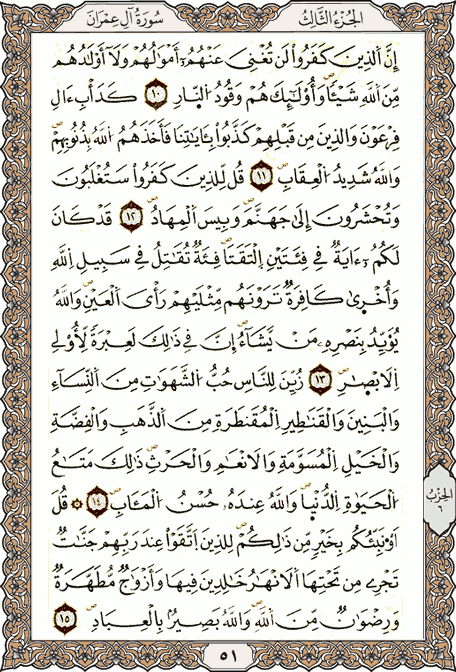 سُورَةُ آلِ عِمْرَانَ
الجُزْءُ الثَّالِثُ
إِنَّ اَ۬لذِينَ كَفَرُواْ لَن تُغْنِيَ عَنْهُمُۥٓ أَمْوَٰلُهُمْ وَلَآ أَوْلَٰدُهُم
مِّنَ اَ۬للَّهِ شَيْـٔاٗ وَأُوْلَٰٓئِكَ هُمْ وَقُودُ اُ۬لنّ۪ارِ ١٠ كَدَأْبِ ءَالِ
فِرْعَوْنَ وَالذِينَ مِن قَبْلِهِمْ كَذَّبُواْ بِـَٔايَٰتِنَا فَأَخَذَهُمُ اُ۬للَّهُ بِذُنُوبِهِمْ
وَاللَّهُ شَدِيدُ اُ۬لْعِقَابِ ١١ قُل لِّلذِينَ كَفَرُواْ سَتُغْلَبُونَ
وَتُحْشَرُونَ إِلَىٰ جَهَنَّمَ وَبِيسَ اَ۬لْمِهَادُ ١٢ قَدْ كَانَ
لَكُمُۥٓ ءَايَةٞ فِے فِئَتَيْنِ اِ۪لْتَقَتَا فِئَةٞ تُقَٰتِلُ فِے سَبِيلِ اِ۬للَّهِ
وَأُخْر۪ىٰ كَافِرَةٞ تَرَوْنَهُم مِّثْلَيْهِمْ رَأْيَ اَ۬لْعَيْنِ وَاللَّهُ
يُؤَيِّدُ بِنَصْرِهِۦ مَنْ يَّشَآءُ إِنَّ فِے ذَٰلِكَ لَعِبْرَةٗ لِّأُوْلِے
اِ۬لَابْصٰ۪رِ ١٣ زُيِّنَ لِلنَّاسِ حُبُّ اُ۬لشَّهَوَٰتِ مِنَ اَ۬لنِّسَآءِ
وَالْبَنِينَ وَالْقَنَٰطِيرِ اِ۬لْمُقَنطَرَةِ مِنَ اَ۬لذَّهَبِ وَالْفِضَّةِ
وَالْخَيْلِ اِ۬لْمُسَوَّمَةِ وَالَانْعَٰمِ وَالْحَرْثِ ذَٰلِكَ مَتَٰعُ
اُ۬لْحَيَوٰةِ اِ۬لدُّنْي۪ا وَاللَّهُ عِندَهُۥ حُسْنُ اُ۬لْمَـَٔابِ ١٤ قُلَ
اَوْ۟نَبِّئُكُم بِخَيْرٖ مِّن ذَٰلِكُمْ لِلذِينَ اَ۪تَّقَوْاْ عِندَ رَبِّهِمْ جَنَّٰتٞ
تَجْرِے مِن تَحْتِهَا اَ۬لَانْهَٰرُ خَٰلِدِينَ فِيهَا وَأَزْوَٰجٞ مُّطَهَّرَةٞ
وَرِضْوَٰنٞ مِّنَ اَ۬للَّهِ وَاللَّهُ بَصِيرُۢ بِالْعِبَادِ ١٥
الحِزْبُ
٦
٥١